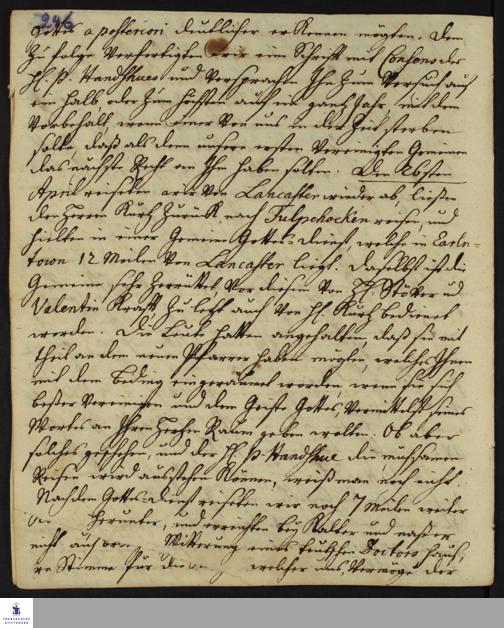 246
Gottes a posteriori deutlicher erkennen mögten. Dem
zu folge verfertigten wir eine Schrift mit Consens des
H. P. Handschues und versprachen Ihn zum Versuch auf
ein halb, oder zum höchsten auf ein gantz Jahr, mit dem
Vorbehalt, wenn einer von uns in der Zeit sterben
solte, daß als dem unsere ersten vereinigten Gemeinen
das nächste Recht an Ihn haben solten. Den
April reiseten wir von Lancaster wieder ab, ließen
den Herrn Kurtz zurück nach Tulpehocken reisen, und
hielten in einer Gemeine Gottes-dienst, welche in Earls-
town 12 Meilen von Lancaster liegt. Daselbst ist die
Gemeine sehr zerrüttet vor diesem von H. Stöver und
Valentin Krafft zu letzt auch von H. Kurtz bedienet
worden. Die Leute hatten angehalten, daß sie mit
theil an dem neuen Pfarrer haben mögten, welches Ihnen
mit dem Beding eingeräumet worden, wenn sie sich
besser vereinigen und dem Geiste Gottes, vermittelst seines
Wortes an Ihren Hertzen Raum geben wolten. Ob aber
solches geschehen, und der H. P. Handschue die mühsamen
Reisen wird ausstehen können, weiß man noch nicht.
Nach dem Gottes-dienst reiseten wir noch 7 Meilen weiter
herunter, und erreichten bey kalter und nasser
Witterung eines teutschen Doctors Hauß,
re Stimme für die welcher uns, vermöge der